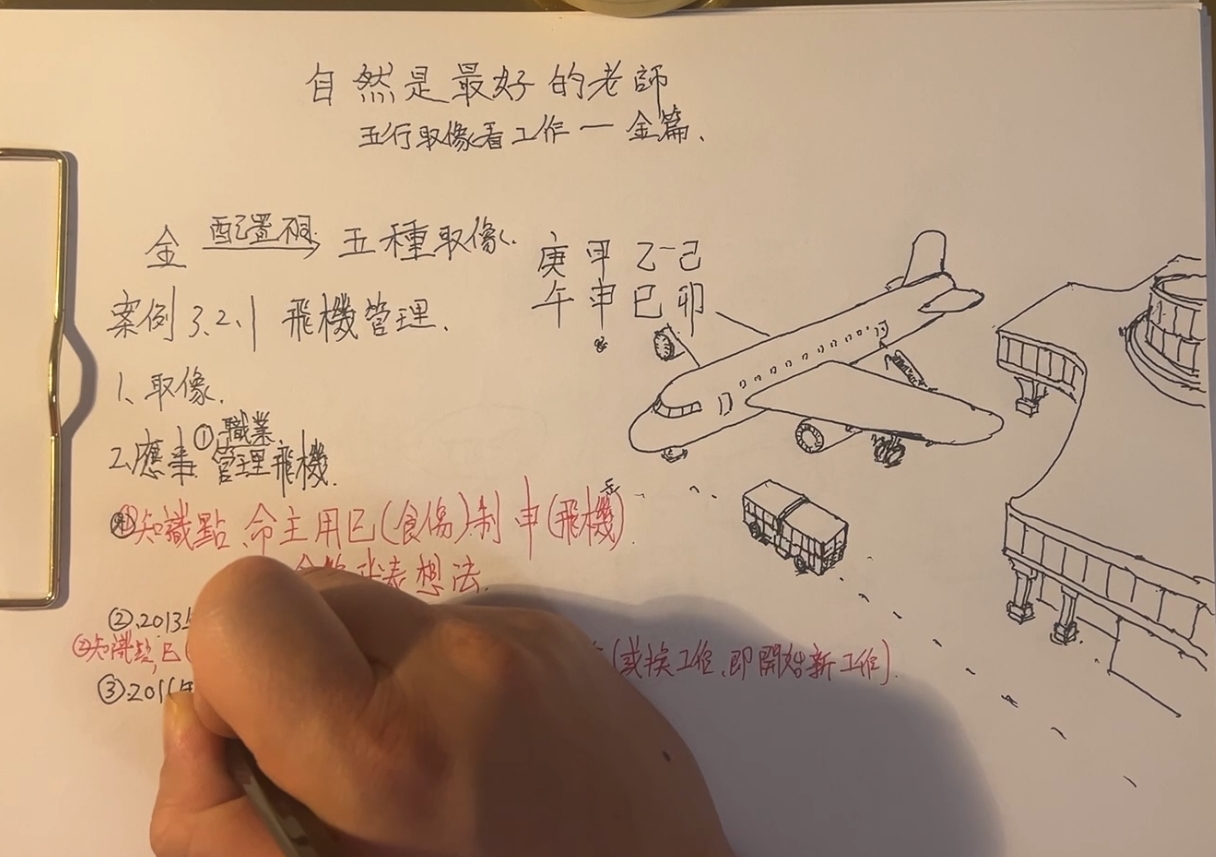 自然是最好的老師
五行取像看工作一金篇.
金 配置禍 五種取像.
庚甲乙己
午申巳卯
案例3.2.1 飛機管理.
1、取像.
2.應事①職業
管理飛機.
①知識點、命主用巳(食傷)制申(飛機).
表想法.
②.2013
②知識點,巳
(或換工作,即開始新工作).
③.2011年